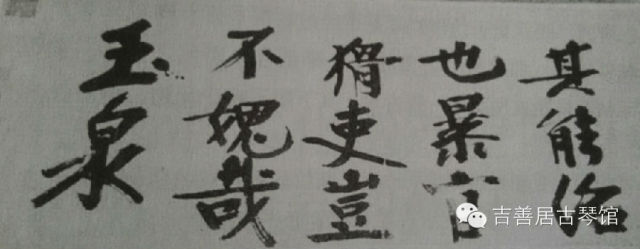 其能治
也暴官
猾吏豈
不媿哉
玉泉
吉善居古琴馆